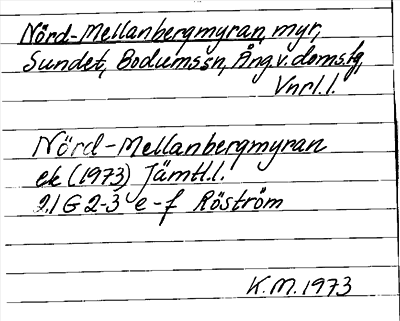 Nörd-Mellanbergmyran, myr,
Sundet, Bodumssn, Ång.v.domslg,
Vnrl.l.
Nörd-Mellanbergmyran
ek (1973) Jämtl.l.
21G 2-3 e-f Röström
K.M. 1973